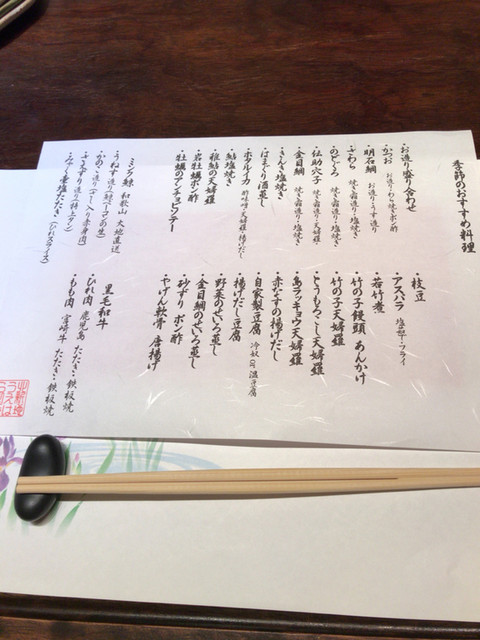 季節のおすすめ料理
・お造り盛り合わせ
・かつお お造り・たたき・焼ポン酢
・明石鯛 お造り・うす造り
・さわら 焼き霜造り・塩焼き
・のどくろ 焼き霜造り・塩焼き
・伝助穴子 焼き霜造り・天婦羅
・金目鯛 焼き霜造り・塩焼き
・きんき塩焼き
・はまぐり酒蒸し
・ホタルイカ 酢味噌・天婦羅・揚げだし
・鮎塩焼き
・稚鮎の天婦羅
・岩牡蠣ポン酢
・牡蠣のアンチョビソテー
ミンク鯨 和歌山 太地直送
・うねす造り(鯨ベーコンの生)
・かのこ造り(さし入り赤身肉)
・さえずり造り(特上タン)
・みやく重塩たたき(ひれスライス)
・枝豆
・アスパラ 塩茹・フライ
・若竹煮
・竹の子饅頭 あんかけ
・竹の子天婦羅
・とうもろこし天婦羅
・島ラッキョウ天婦羅
・赤なすの揚げだし
・自家製豆腐 冷奴 or 温豆腐
・揚げだし豆腐
・野菜のせいろ蒸し
・金目鯛のせいろ蒸し
・砂ずり ポン酢
・やげん軟骨 唐揚げ
黒毛和牛
・ひれ肉 鹿児島 たたき・鉄板焼
・もも肉 宮崎牛 たたき・鉄板焼